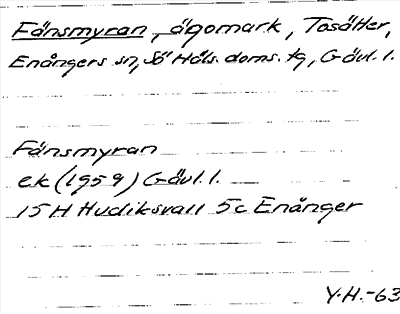 Fänsmyran, ägomark, Tosätter,
Enångers sn, Sö Häls. doms. tg, Gävl. l.
Fänsmyran
ek (1959) Gävl. l.
15H Hudiksvall 5c Enånger
Y.H.-63